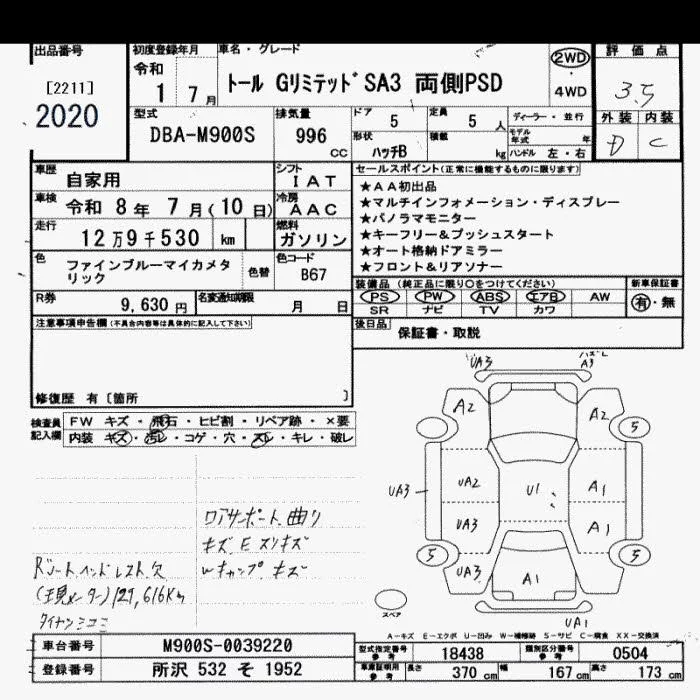 出品番号 初度登録年月 車名・グレード 評価点
[2211] 令和 2WD
2020 1 7月 トール GリミテッドSA3 両側PSD 4WD 3.5
型式 排気量 ドア 定員 ディーラー・並行 外装 内装
DBA-M900S 996 CC 5 5人 モデル年式 年 D C
形状 積載
ハッチB kg ハンドル 左・右
車歴 自家用 シフト IAT セールスポイント(正常に機能するものに限ります)
車検 令和 8年 7月(10日) 冷房 AAC ★AA初出品
★マルチインフォメーション・ディスプレー
走行 12万9千530 km 燃料 ガソリン ★パノラマモニター
★キーフリー&プッシュスタート
色 ファインブルーマイカメタリック 色替 色コード B67 ★オート格納ドアミラー
★フロント&リアソナー
装備品(純正品に限り○をつけてください) 新車保証書
R券 9,630円 名変通知期限 月 日 PS PW ABS エアB AW 有・無
SR ナビ TV カワ
注意事項申告欄(不具合内容等は具体的に記入して下さい) 後日品 保証書・取説
修復歴 有〔箇所 〕
検査員記入欄 FW キズ・飛石・ヒビ割・リペア跡・×要
内装 キズ・汚レ・コゲ・穴・スレ・キレ・破レ
UA3 A3
A2 A2
5
UA2 A1
UA3 U1
UA3 A1
5 5
UA3 A1
UA1
スペア
ロアサーポート曲り
キズ E スリキズ
Wキャップ キズ
Rシートヘッドレスト欠
(現メーター)129,616Km
A-キズ E-エクボ U-凹み W-補修跡 S-サビ C-腐食 XX-交換済
車台番号 M900S-0039220 型式指定番号 参考 18438 類別区分番号 参考 0504
登録番号 所沢 532 そ 1952 車庫証明用 参考 長さ 370 cm 幅 167 cm 高さ 173 cm